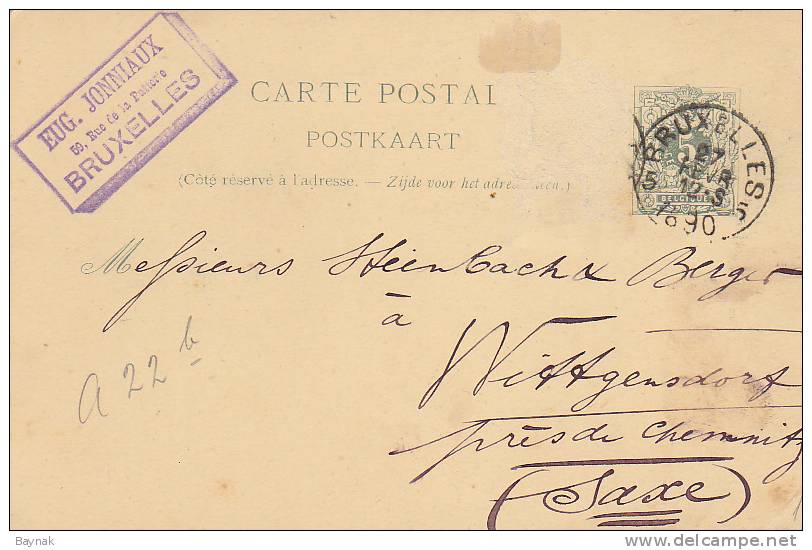 EUG. JONNIAUX
59, Rue de la Putterie
BRUXELLES
CARTE POSTAL
POSTKAART
(Côté réservé à l'adresse. — Zijde voor het adres
5
BELGIQUE
BRUXELLES
27
FEVR
12-S
1890
5 5
Messieurs Steinbach & Berger
à
Wittgensdorf
près de Chemnitz
(Saxe)
a 22 b
Baynak
delcampe.net